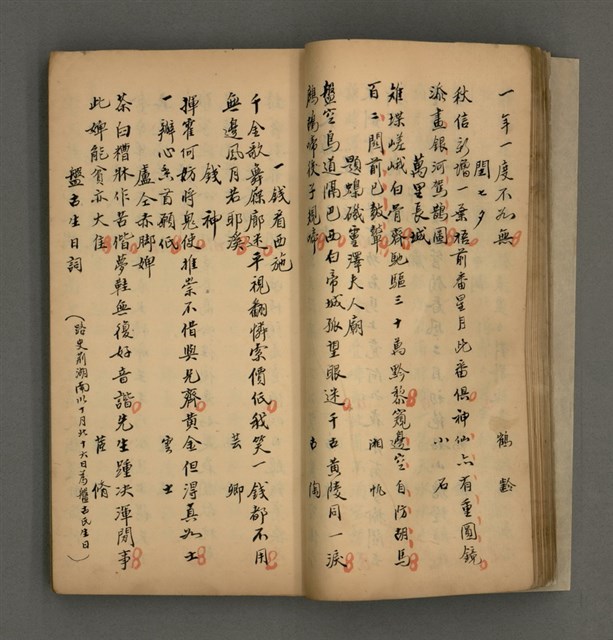 一年一度不如無　　鶴齡
閏七夕
秋信新增一葉梧前番星月此番俱神仙亦有重圓鏡
添畫銀河駕鵲圖　　小石
萬里長城
雉堞嵯峨白骨齊馳驅三十萬黔黎窺邊空自防胡馬
百二關前已鼓鼙　　湘帆
題螅磯靈澤夫人廟
盤空鳥道隔巴西白帝城孤望眼迷千古黃陵同一淚
鷓鴣啼後子規啼　　古陶
一錢看西施
千金歌舞屧廊迷平視翻憐索價低我笑一錢都不用
無邊風月若耶溪　　芸卿
錢神
揮霍何妨將鬼使推崇不借與兄齊黃金但得真如土
一辦心香首願低　　雲士
盧仝赤腳婢
茶臼糟牀作苦偕夢鞋無復好音諧先生踵決渾閒事
此婢能貧亦大佳　　茝脩
盤古生日詞
（路史荊湖南以十月十六日為盤古氏生日）